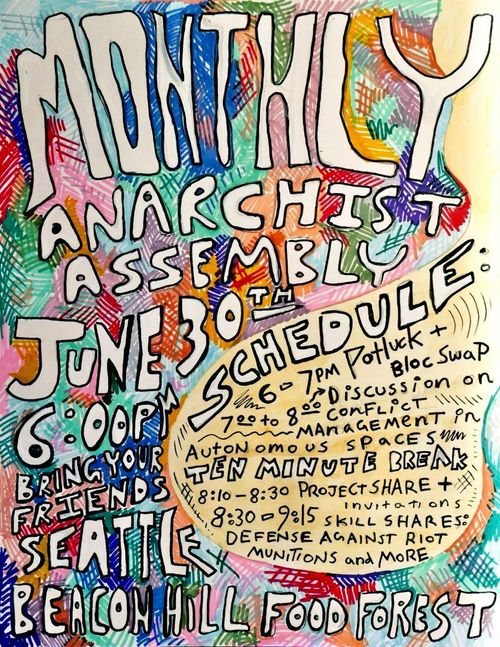 MONTHLY
ANARCHIST
ASSEMBLY
JUNE 30TH
6:00PM
BRING YOUR
FRIENDS
SEATTLE
BEACON HILL FOOD FOREST
SCHEDULE:
6-7PM Potluck +
Bloc SWAP
7:00 to 8:00 Discussion on
CONFLICT
MANAGEMENT in
AUTONOMOUS SPACES
TEN MINUTE BREAK
8:10-8:30 PROJECT SHARE +
invitations
8:30-9:15 SKILL SHARES:
DEFENSE AGAINST RIOT
MUNITIONS and MORE